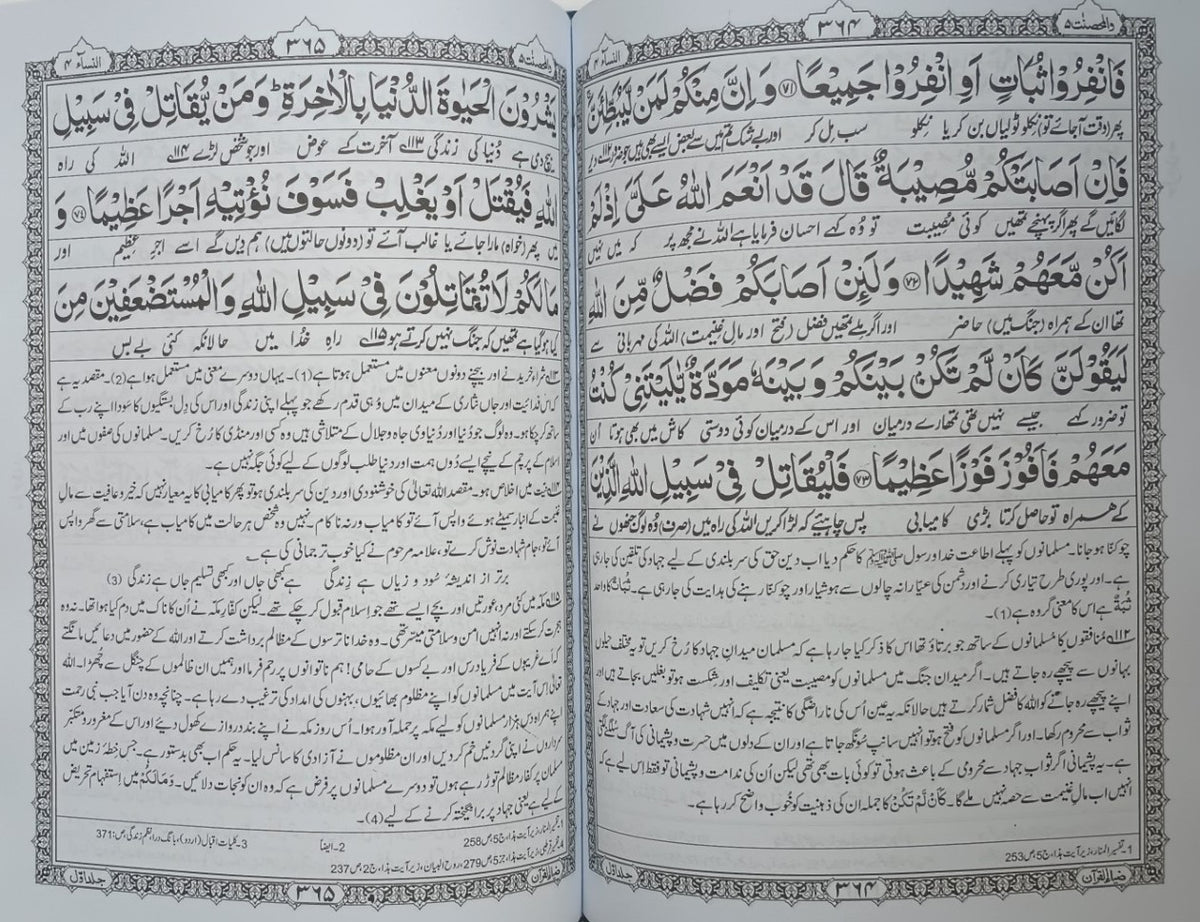 والمحصنٰت ۵
۳۶۴
النسآء ۴
فَانْفِرُوْا ثُبَاتٍ اَوِ انْفِرُوْا جَمِیْعًا ﴿۷۱﴾ وَ اِنَّ مِنْكُمْ لَمَنْ لَّیُبَطِّئَنَّ ۚ
پھر (وقت آجائے تو) نکلو ٹولیاں بن کر یا نکلو سب مل کر اور بے شک تم میں سے بعض ایسے بھی ہیں جو ضرور ۱۱۲ دیر
فَاِنْ اَصَابَتْكُمْ مُّصِیْبَةٌ قَالَ قَدْ اَنْعَمَ اللّٰهُ عَلَیَّ اِذْ لَمْ
لگائیں گے پھر اگر پہنچے تمھیں کوئی مصیبت تو وُہ کہے احسان فرمایا ہے اللہ نے مجھ پر کہ میں نہیں
اَكُنْ مَّعَهُمْ شَهِیْدًا ﴿۷۲﴾ وَ لَىِٕنْ اَصَابَكُمْ فَضْلٌ مِّنَ اللّٰهِ
تھا ان کے ہمراہ (جنگ میں) حاضر اور اگر ملے تمھیں فضل (فتح اور مالِ غنیمت) اللہ کی مہربانی سے
لَیَقُوْلَنَّ كَاَنْ لَّمْ تَكُنْۢ بَیْنَكُمْ وَ بَیْنَهٗ مَوَدَّةٌ یّٰلَیْتَنِیْ كُنْتُ
تو ضرور کہے جیسے نہیں تھی تمھارے درمیان اور اس کے درمیان کوئی دوستی کاش میں بھی ہوتا اُن
مَعَهُمْ فَاَفُوْزَ فَوْزًا عَظِیْمًا ﴿۷۳﴾ فَلْیُقَاتِلْ فِیْ سَبِیْلِ اللّٰهِ الَّذِیْنَ
کے ہمراہ تو حاصل کرتا بڑی کامیابی پس چاہیئے کہ لڑا کریں اللہ کی راہ میں (صرف) وُہ لوگ جنھوں نے
چوکنّا ہو جانا۔ مسلمانوں کو پہلے اطاعت خدا و رسول ﷺ کا حکم دیا اب دین حق کی سربلندی کے لیے جہاد کی تلقین کی جارہی
ہے۔ اور پوری طرح تیاری کرنے اور دشمن کی عیّارانہ چالوں سے ہوشیار اور چوکنّا رہنے کی ہدایت کی جارہی ہے۔ ثُبَاتٌ کا واحد
ثُبَةٌ ہے اس کا معنیٰ گروہ ہے (1)۔
۱۱۲ منافقوں کا مسلمانوں کے ساتھ جو برتاؤ تھا اس کا ذکر کیا جا رہا ہے کہ مسلمان میدانِ جہاد کا رُخ کریں تو یہ مختلف حیلوں
بہانوں سے پیچھے رہ جاتے ہیں۔ اگر میدانِ جنگ میں مسلمانوں کو مصیبت یعنی تکلیف اور شکست ہو تو بغلیں بجاتے ہیں اور
اپنے پیچھے رہ جانے کو اللہ کا فضل شمار کرتے ہیں حالانکہ یہ عین اُس کی ناراضگی کا نتیجہ ہے کہ انہیں شہادت کی سعادت اور جہاد کے
ثواب سے محروم رکھا۔ اور اگر مسلمانوں کو فتح ہو تو انہیں سانپ سُونگھ جاتا ہے اور ان کے دلوں میں حسرت و پشیمانی کی آگ سلگنے لگتی
ہے۔ یہ پشیمانی اگر ثوابِ جہاد سے محرومی کے باعث ہوتی تو کوئی بات بھی تھی لیکن اُن کی ندامت و پشیمانی تو فقط اِس لیے ہے کہ
انہیں اب مالِ غنیمت سے حصہ نہیں ملے گا۔ كَاَنْ لَّمْ تَكُنْ کا جملہ ان کی ذہنیت کو خُوب واضح کر رہا ہے۔
1۔ تفسیر المنار، زیر آیت ہذا، ج5، ص253
ضیاءالقرآن
۳۶۴
جلد اوّل
والمحصنٰت ۵
۳۶۵
النسآء ۴
یَشْرُوْنَ الْحَیٰوةَ الدُّنْیَا بِالْاٰخِرَةِ ؕ وَ مَنْ یُّقَاتِلْ فِیْ سَبِیْلِ
بیچ دی ہے دُنیا کی زندگی ۱۱۳ آخرت کے عوض اور جو شخص لڑے ۱۱۴ اللہ کی راہ
اللّٰهِ فَیُقْتَلْ اَوْ یَغْلِبْ فَسَوْفَ نُؤْتِیْهِ اَجْرًا عَظِیْمًا ﴿۷۴﴾ وَ
میں پھر (خواہ) مارا جائے یا غالب آئے تو (دونوں حالتوں میں) ہم دیں گے اسے اجرِ عظیم اور
مَا لَكُمْ لَا تُقَاتِلُوْنَ فِیْ سَبِیْلِ اللّٰهِ وَ الْمُسْتَضْعَفِیْنَ مِنَ
کیا ہو گیا ہے تمھیں کہ جنگ نہیں کرتے ہو ۱۱۵ راہِ خُدا میں حالانکہ کئی بے بس
۱۱۳ شراء خریدنے اور بیچنے دونوں معنوں میں مستعمل ہوتا ہے (1)۔ یہاں دوسرے معنی میں مستعمل ہوا ہے (2)۔ مقصد یہ ہے
کہ اس فدائیت اور جاں نثاری کے میدان میں وُہی قدم رکھے جو پہلے اپنی زندگی اور اس کی دِل بستگیوں کا سَودا اپنے رب کے
ساتھ کر چکا ہو۔ وہ لوگ جو دُنیا اور دُنیاوی جاہ و جلال کے متلاشی ہیں وہ کسی اور منڈی کا رُخ کریں۔ مسلمانوں کی صفوں میں اور
اسلام کے پرچم کے نیچے ایسے دُوں ہمت اور دنیا طلب لوگوں کے لیے کوئی جگہ نہیں ہے۔
۱۱۴ نیت میں اخلاص ہو۔ مقصد اللہ تعالیٰ کی خوشنودی اور دین کی سربلندی ہو تو پھر کامیابی کا یہ معیار نہیں کہ خیر و عافیت سے مالِ
غنیمت کے انبار سمیٹے ہوئے واپس آئے تو کامیاب ورنہ ناکام۔ نہیں وہ شخص ہر حالت میں کامیاب ہے، سلامتی سے گھر واپس
آئے تو، جامِ شہادت نوش کرے تو، علامہ مرحوم نے کیا خوب ترجمانی کی ہے
برتر از اندیشۂ سُود و زیاں ہے زندگی ہے کبھی جاں اور کبھی تسلیمِ جاں ہے زندگی (3)
۱۱۵ مکہ میں کئی مرد، عورتیں اور بچے ایسے تھے جو اِسلام قبول کر چکے تھے۔ لیکن کفار مکہ نے اُن کا ناک میں دم کیا ہوا تھا۔ نہ وہ
ہجرت کر سکتے اور نہ انہیں امن و سلامتی میسّر تھی۔ وہ خدا نا ترسوں کے مظالم برداشت کرتے اور اللہ کے حضور میں دعائیں مانگتے
کہ اَے غریبوں کے فریادرس اور بے کسوں کے حامی! ہم ناتوانوں پر رحم فرما اور ہمیں ان ظالموں کے چنگل سے چھڑا۔ اللہ
تعالیٰ اِس آیت میں مسلمانوں کو اپنے مظلوم بھائیوں، بہنوں کی امداد کی ترغیب دے رہا ہے۔ چنانچہ وہ دن آیا جب نبی رحمت
اپنے ہمراہ دس ہزار مسلمانوں کو لیے مکہ پر حملہ آور ہوا۔ اُس روز مکہ نے اپنے بند دروازے کھول دیئے اور اس کے مغرور و متکبّر
سرداروں نے اپنی گردنیں خم کر دیں اور ان مظلوموں نے آزادی کا سانس لیا۔ یہ حکم اب بھی بدستور ہے۔ جس خطۂ زمین میں
مسلمان پر کفار مظالم توڑ رہے ہوں تو دوسرے مسلمانوں پر فرض ہے کہ وہ ان کو نجات دلائیں۔ وَمَا لَكُمْ میں اِستفہام تحریض
کے لیے ہے یعنی جہاد پر برانگیختہ کرنے کے لیے (4)۔
1۔ تفسیر المنار، زیر آیت ہذا، ج5، ص258 2۔ ایضاً 3۔ کلیات اقبال (اردو)، بانگ درا، نظم زندگی، ص: 371
4۔ تفسیر قرطبی، زیر آیت ہذا، جز5، ص279، روح البیان، زیر آیت ہذا، ج2، ص237
ضیاءالقرآن
۳۶۵
جلد اوّل